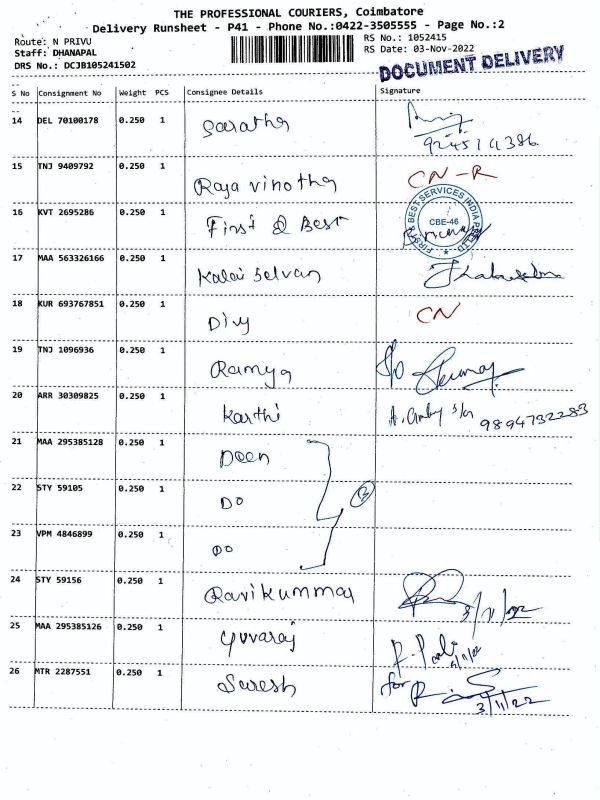 THE PROFESSIONAL COURIERS, Coimbatore
Delivery Runsheet - P41 - Phone No.:0422-3505555 - Page No.:2
Route: N PRIVU
Staff: DHANAPAL
DRS No.: DCJB105241502
RS No.: 1052415
RS Date: 03-Nov-2022
DOCUMENT DELIVERY
S No Consignment No Weight PCS Consignee Details Signature
14 DEL 70100178 0.250 1 Saratha
9245141386
15 TNJ 9409792 0.250 1 Raja vinotha CN-R
16 KVT 2695286 0.250 1 First & Best
FIRST & BEST SERVICES INDIA PVT LTD
CBE-46
17 MAA 563326166 0.250 1 Kalai Selvan
18 KUR 693767851 0.250 1 Divy CN
19 TNJ 1096936 0.250 1 Ramya S/o
20 ARR 30309825 0.250 1 Karthi A. s/o 9894732283
21 MAA 295385128 0.250 1 Deen
22 STY 59105 0.250 1 DO
23 VPM 4846899 0.250 1 DO
24 STY 59156 0.250 1 Ravikummar 3/11/22
25 MAA 295385126 0.250 1 yuvaraj 3/11/22
26 MTR 2287551 0.250 1 Suresh for 3/11/22